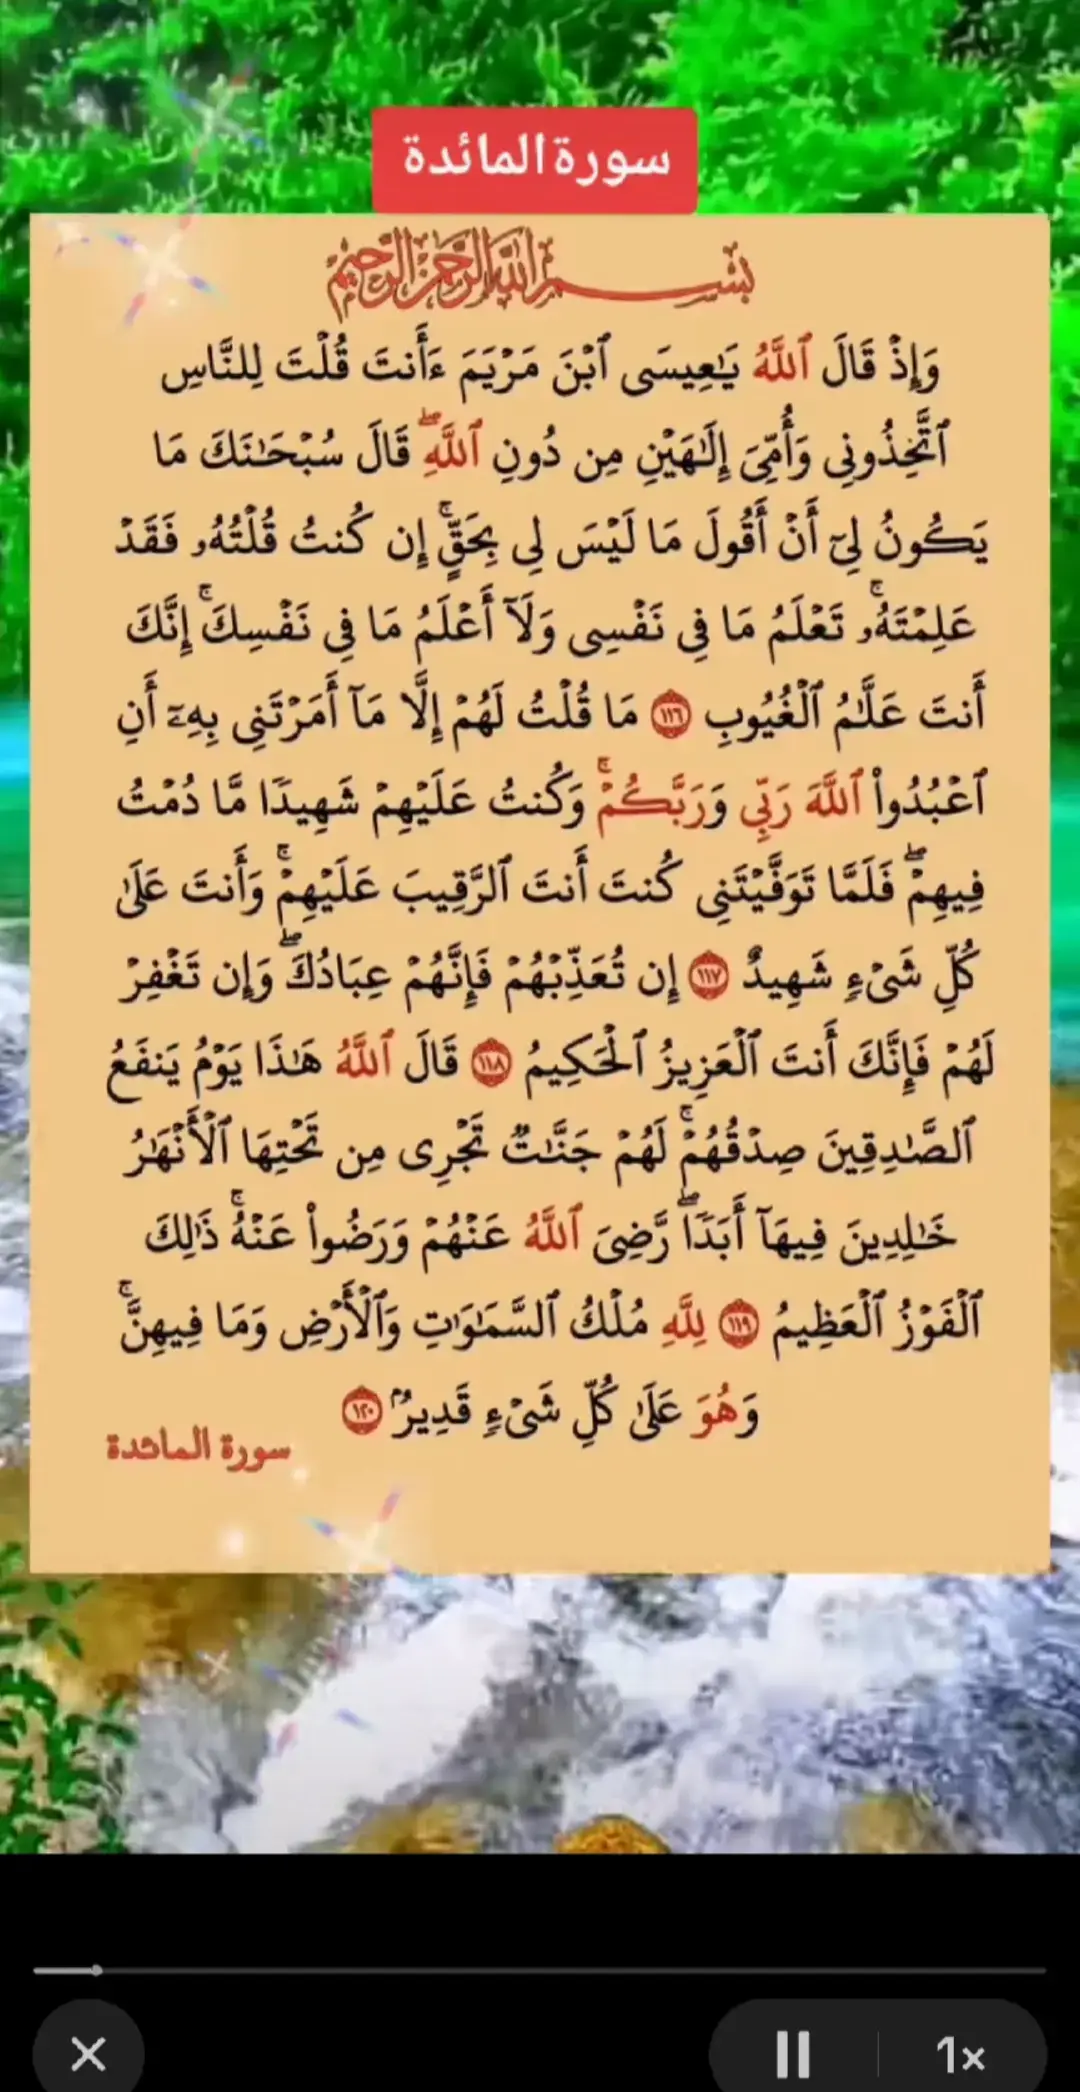 سورة المائدة
بِسْمِ ٱللَّهِ ٱلرَّحْمَٰنِ ٱلرَّحِيمِ
وَإِذْ قَالَ ٱللَّهُ يَٰعِيسَى ٱبْنَ مَرْيَمَ ءَأَنتَ قُلْتَ لِلنَّاسِ
ٱتَّخِذُونِى وَأُمِّىَ إِلَٰهَيْنِ مِن دُونِ ٱللَّهِ ۖ قَالَ سُبْحَٰنَكَ مَا
يَكُونُ لِىٓ أَنْ أَقُولَ مَا لَيْسَ لِى بِحَقٍّ ۚ إِن كُنتُ قُلْتُهُۥ فَقَدْ
عَلِمْتَهُۥ ۚ تَعْلَمُ مَا فِى نَفْسِى وَلَآ أَعْلَمُ مَا فِى نَفْسِكَ ۚ إِنَّكَ
أَنتَ عَلَّٰمُ ٱلْغُيُوبِ ١١٦ مَا قُلْتُ لَهُمْ إِلَّا مَآ أَمَرْتَنِى بِهِۦٓ أَنِ
ٱعْبُدُوا۟ ٱللَّهَ رَبِّى وَرَبَّكُمْ ۚ وَكُنتُ عَلَيْهِمْ شَهِيدًا مَّا دُمْتُ
فِيهِمْ ۖ فَلَمَّا تَوَفَّيْتَنِى كُنتَ أَنتَ ٱلرَّقِيبَ عَلَيْهِمْ ۚ وَأَنتَ عَلَىٰ
كُلِّ شَىْءٍ شَهِيدٌ ١١٧ إِن تُعَذِّبْهُمْ فَإِنَّهُمْ عِبَادُكَ ۖ وَإِن تَغْفِرْ
لَهُمْ فَإِنَّكَ أَنتَ ٱلْعَزِيزُ ٱلْحَكِيمُ ١١٨ قَالَ ٱللَّهُ هَٰذَا يَوْمُ يَنفَعُ
ٱلصَّٰدِقِينَ صِدْقُهُمْ ۚ لَهُمْ جَنَّٰتٌ تَجْرِى مِن تَحْتِهَا ٱلْأَنْهَٰرُ
خَٰلِدِينَ فِيهَآ أَبَدًا ۖ رَّضِىَ ٱللَّهُ عَنْهُمْ وَرَضُوا۟ عَنْهُ ۚ ذَٰلِكَ
ٱلْفَوْزُ ٱلْعَظِيمُ ١١٩ لِلَّهِ مُلْكُ ٱلسَّمَٰوَٰتِ وَٱلْأَرْضِ وَمَا فِيهِنَّ ۚ
وَهُوَ عَلَىٰ كُلِّ شَىْءٍ قَدِيرٌۢ ١٢٠
سورة المائدة
1×